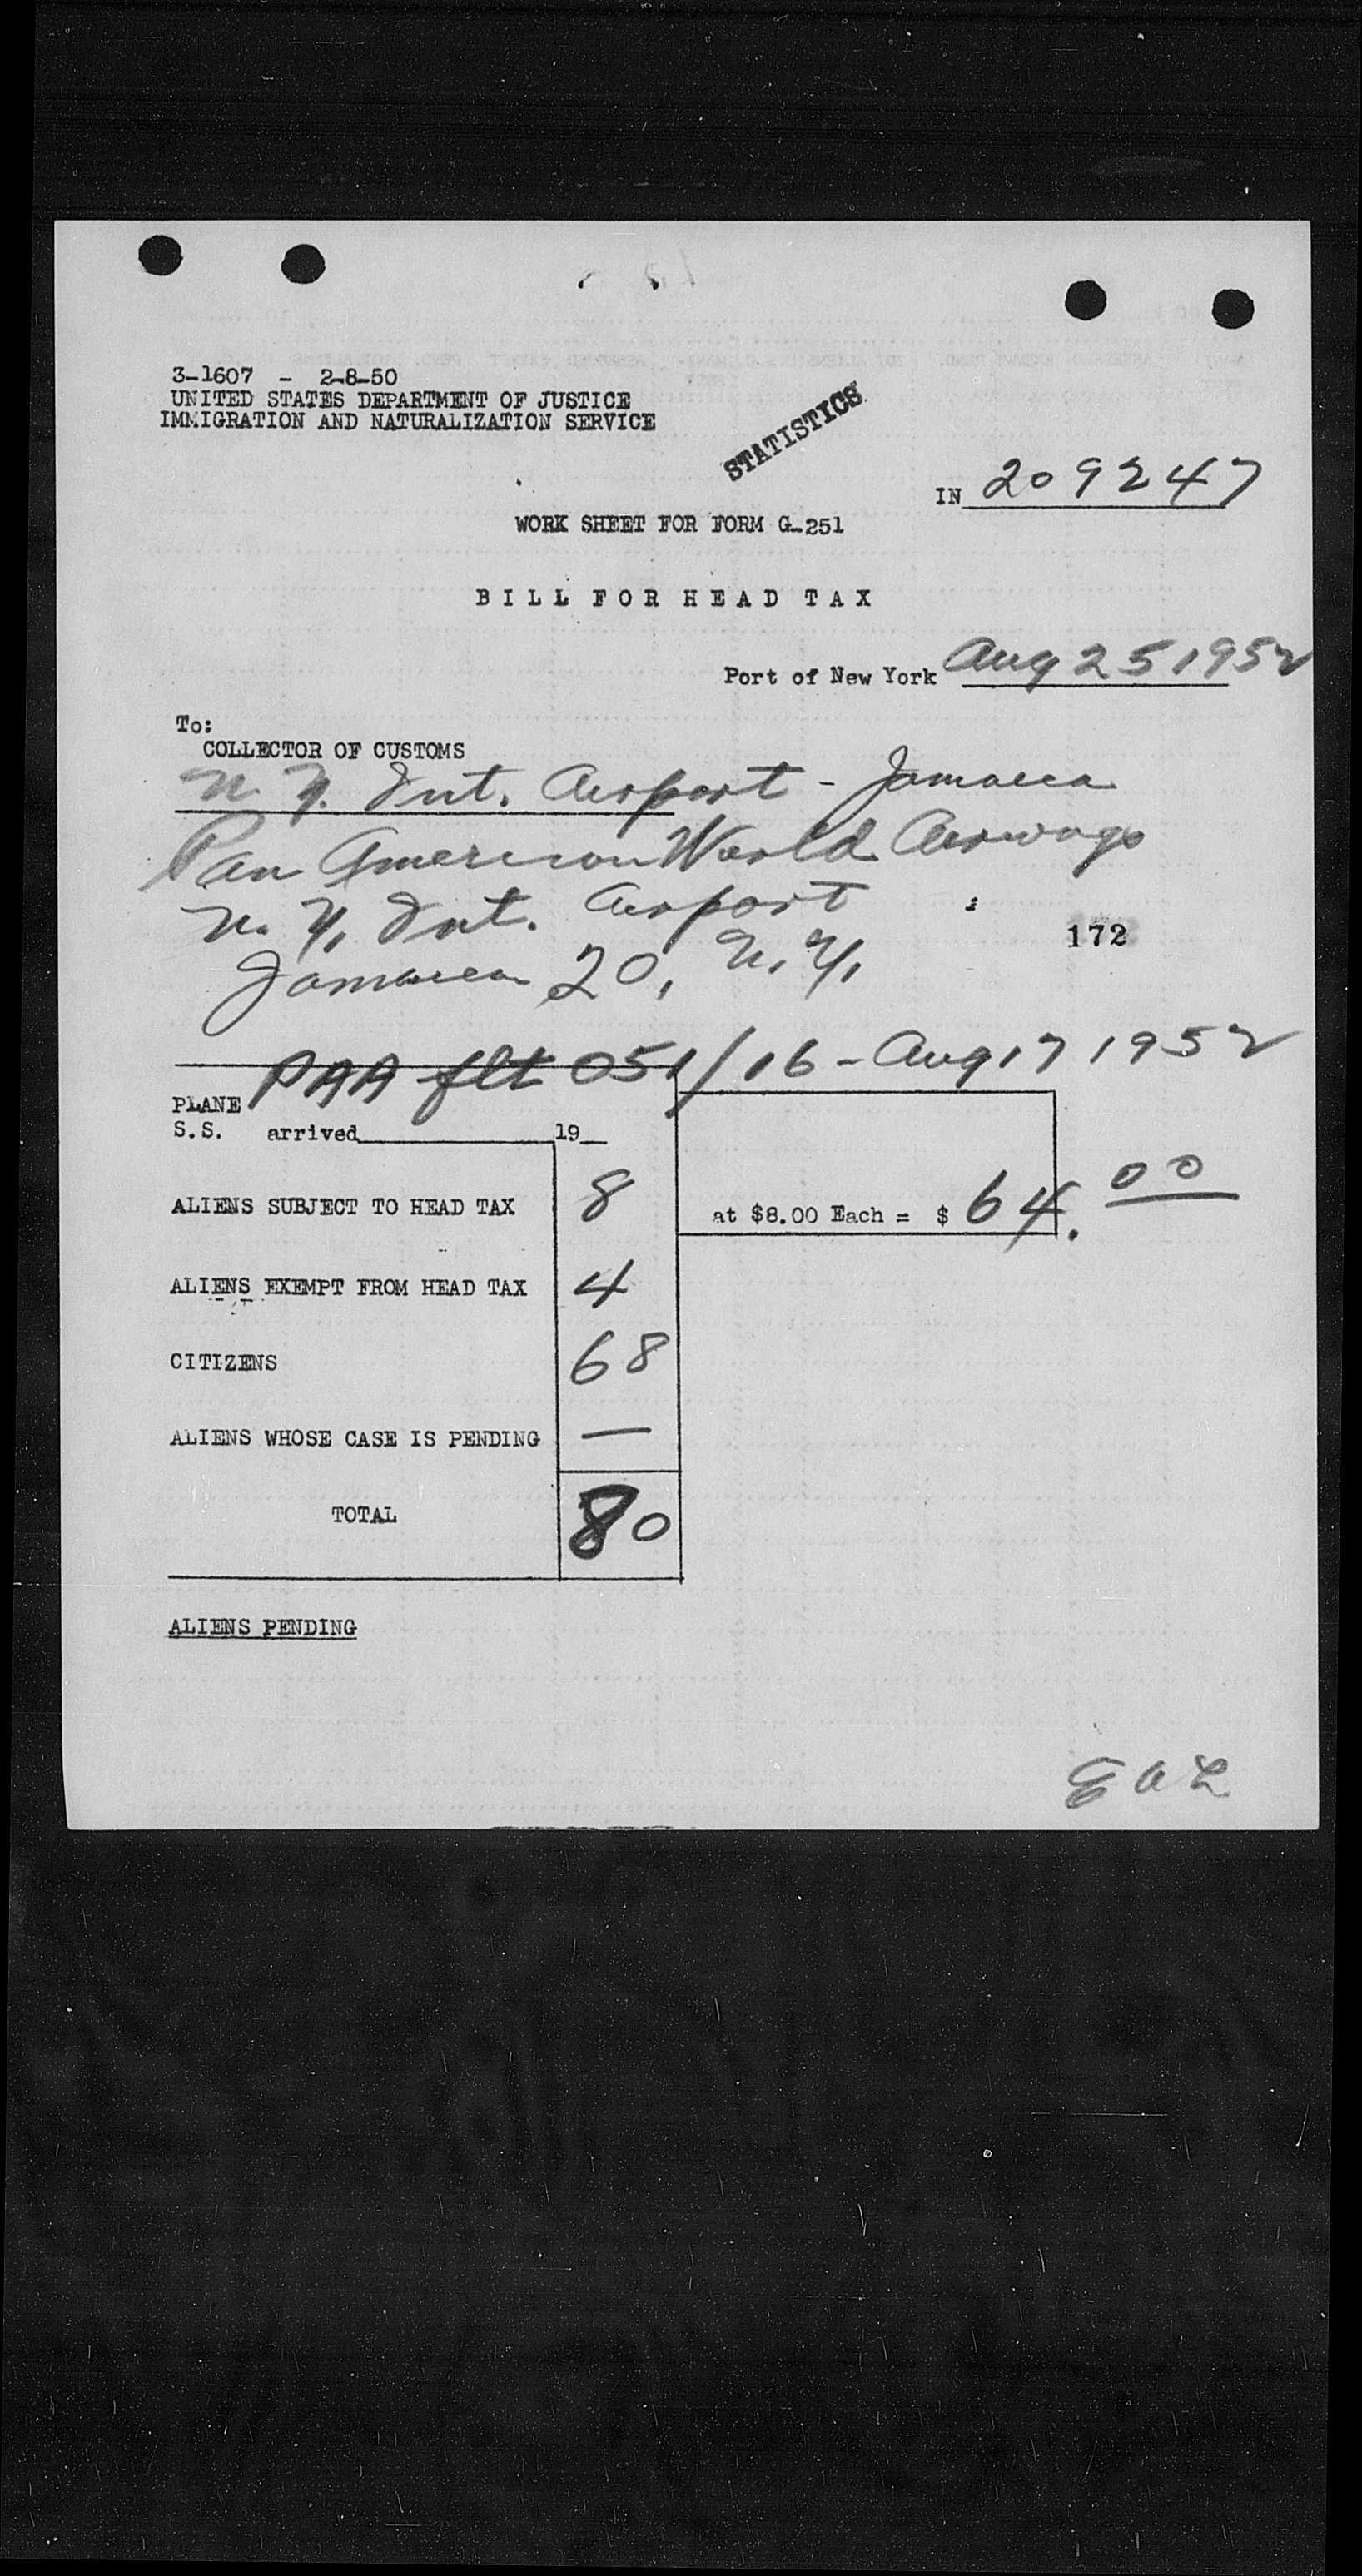 3-1607 - 2-8-50
UNITED STATES DEPARTMENT OF JUSTICE
IMMIGRATION AND NATURALIZATION SERVICE
STATISTICS
IN 209247
WORK SHEET FOR FORM G-251
BILL FOR HEAD TAX
Port of New York Aug 25 1952
To:
COLLECTOR OF CUSTOMS
N. Y. Int. Airport - Jamaica
Pan American World Airways
N. Y. Int. Airport
172
Jamaica 20, N. Y.
PAA flt 051/16 - Aug 17 1952
PLANE
S.S. arrived 19
ALIENS SUBJECT TO HEAD TAX 8 at $8.00 Each = $ 64.00
ALIENS EXEMPT FROM HEAD TAX 4
CITIZENS 68
ALIENS WHOSE CASE IS PENDING —
TOTAL 80
ALIENS PENDING